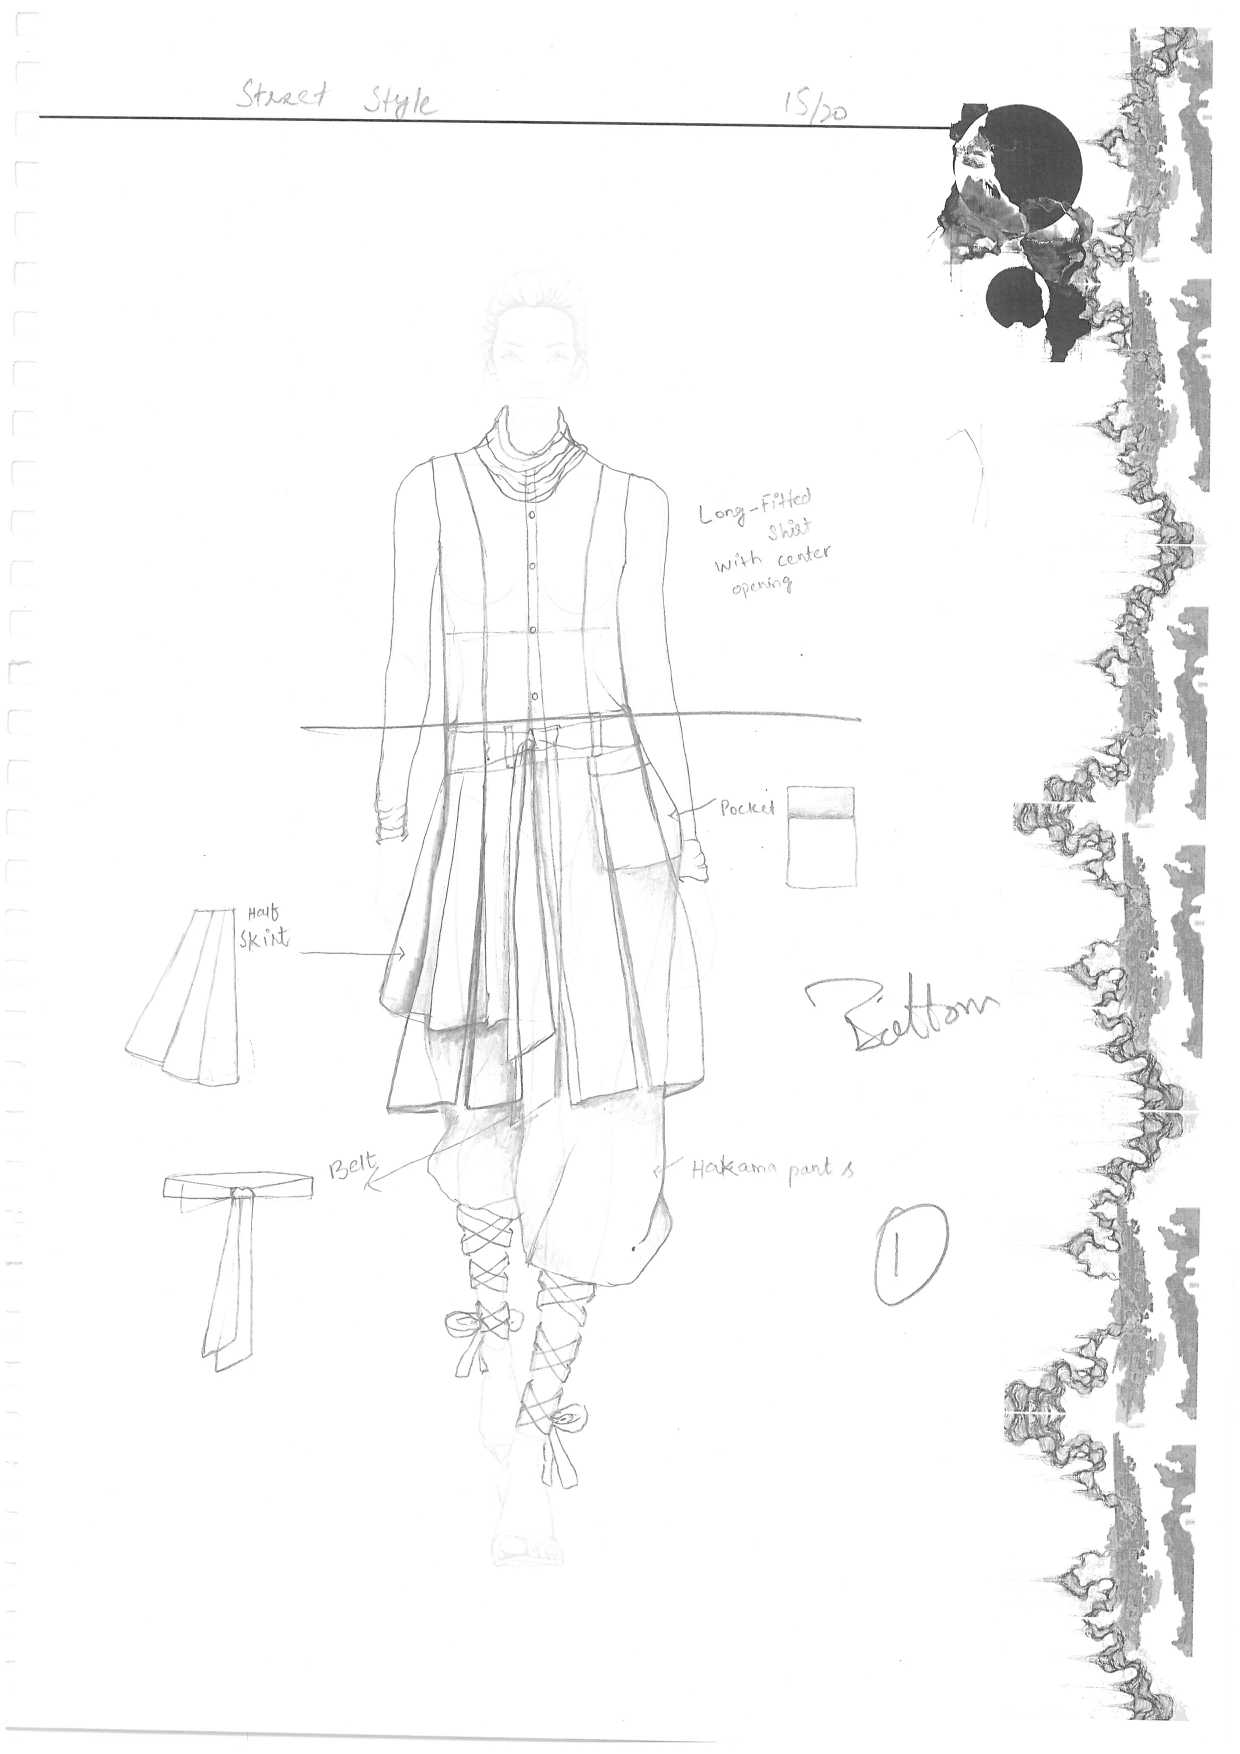 Street Style 15/20
Long-Fitted
Shirt
with center
opening
Pocket
Half
Skirt
Bottom
Belt
Hakama pants
1